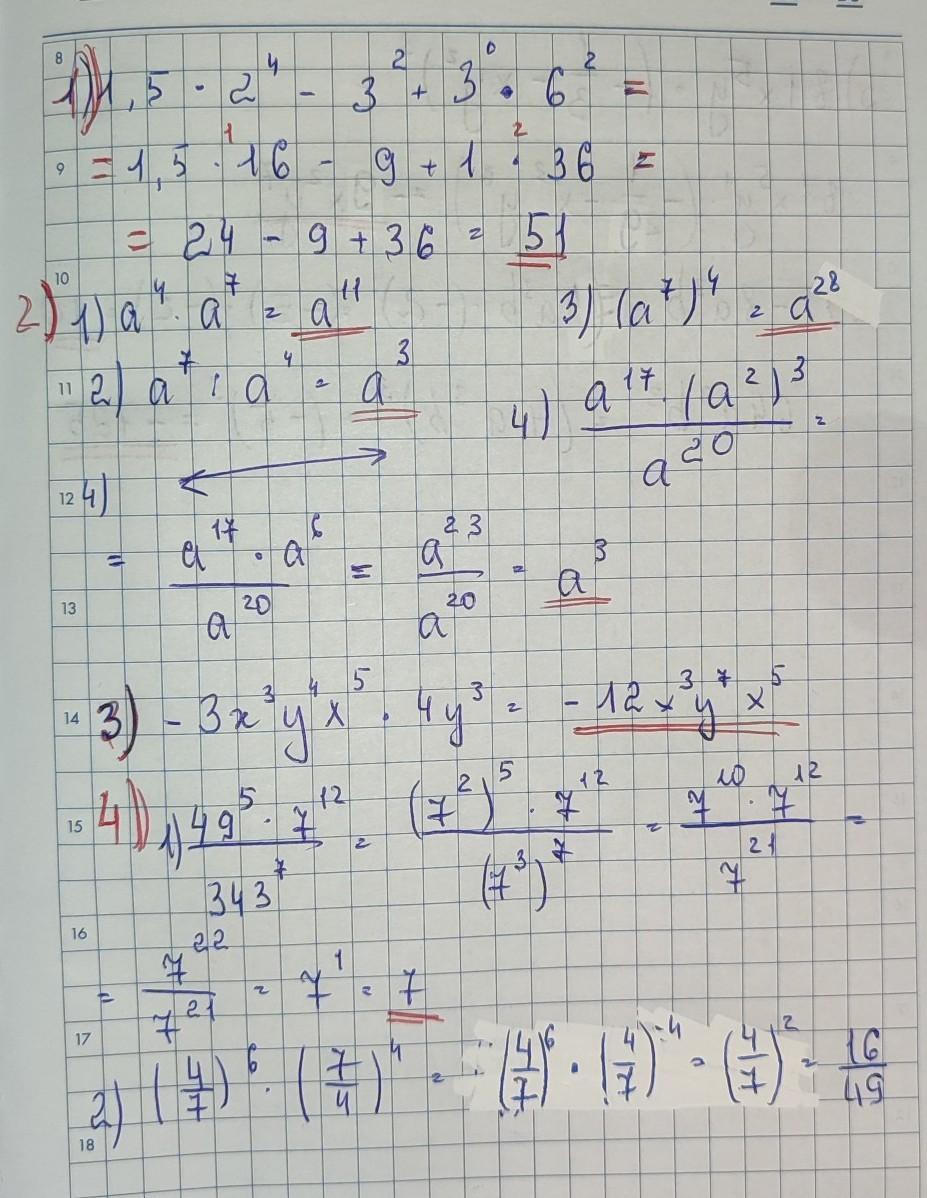 8
1) 1,5 · 2⁴ - 3² + 3⁰ · 6² =
9 = 1,5 ·¹ 16 - 9 + 1 ·² 36 =
= 24 - 9 + 36 = 51
10
2) 1) a⁴ · a⁷ = a¹¹ 3) (a⁷)⁴ = a²⁸
11 2) a⁷ : a⁴ = a³ 4) a¹⁷ · (a²)³ / a²⁰ =
12 4)
= a¹⁷ · a⁶ / a²⁰ = a²³ / a²⁰ = a³
13
14 3) - 3x³y⁴x⁵ · 4y³ = - 12x³y⁷x⁵
15 4) 1) 49⁵ · 7¹² / 343⁷ = (7²)⁵ · 7¹² / (7³)⁷ = 7¹⁰ · 7¹² / 7²¹ =
16
= 7²² / 7²¹ = 7¹ = 7
17
2) (4/7)⁶ · (7/4)⁴ = (4/7)⁶ · (4/7)⁻⁴ = (4/7)² = 16/49
18